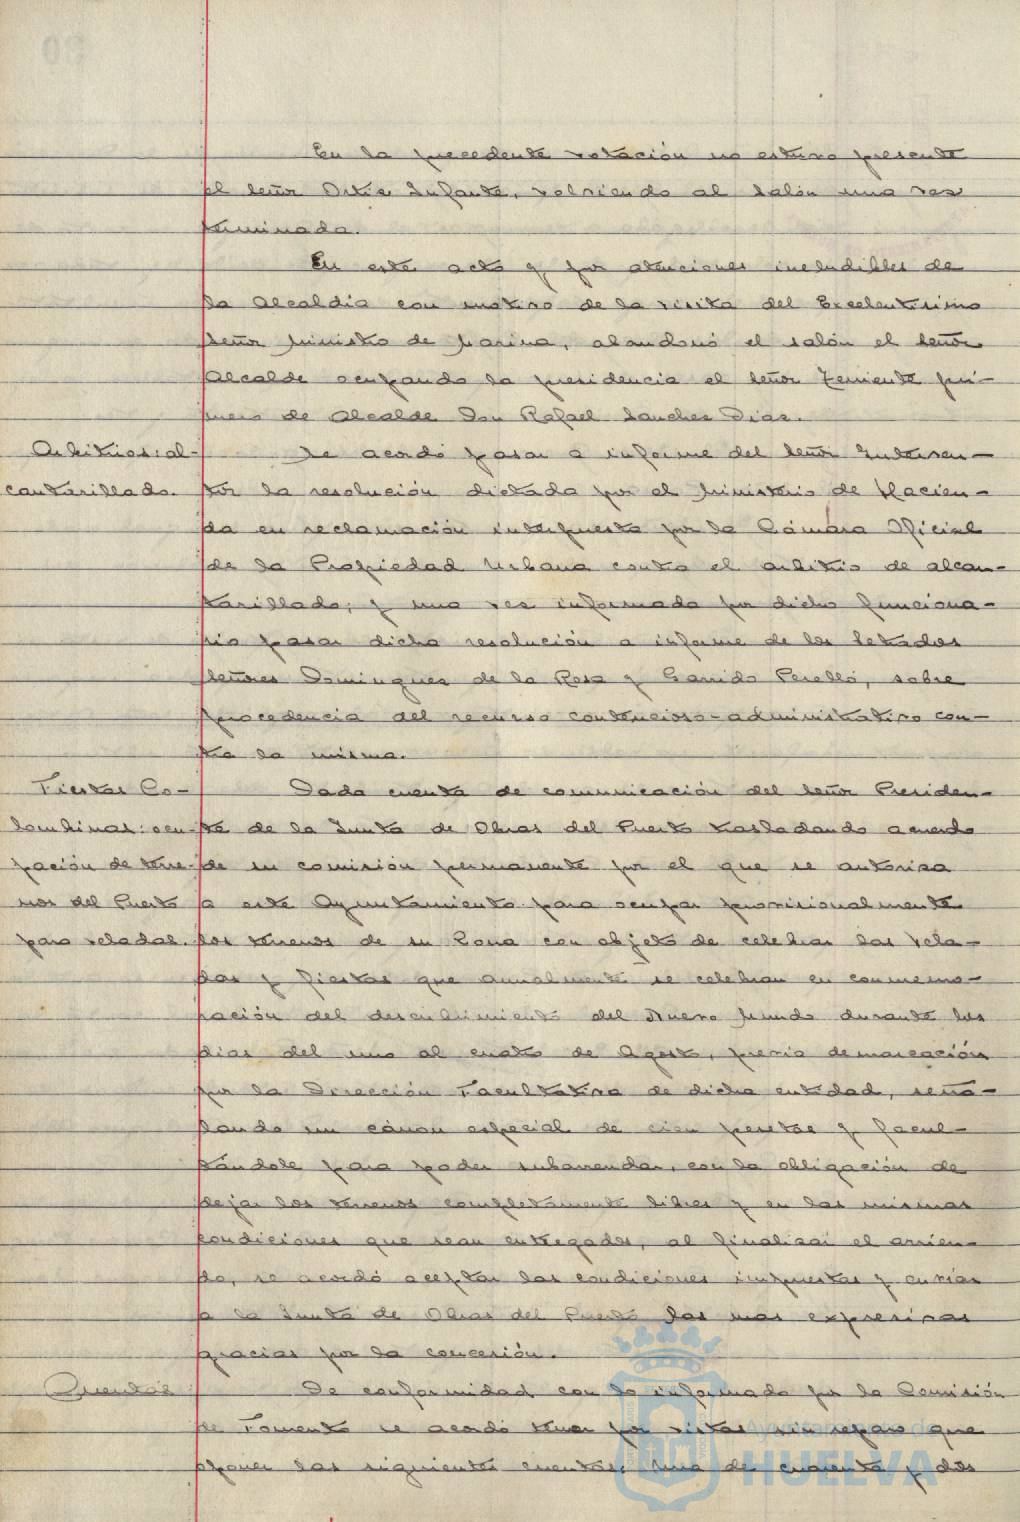 En la precedente votación no estuvo presente
el señor Ortiz Infante, volviendo al salón una vez
terminada.
En este acto y por atenciones ineludibles de
la Alcaldía con motivo de la visita del Excelentísimo
señor Ministro de Marina, abandonó el salón el señor
Alcalde ocupando la presidencia el señor Teniente pri-
mero de Alcalde Don Rafael Sanchez Diaz.
Arbitrios: al-
cantarillado.
Se acordó pasar a informe del señor Interven-
tor la resolución dictada por el Ministerio de Hacien-
da en reclamación interpuesta por la Cámara Oficial
de la Propiedad Urbana contra el arbitrio de alcan-
tarillado; y una vez informada por dicho funciona-
rio pasar dicha resolución a informe de los Letrados
señores Dominguez de la Rosa y Garrido Perelló, sobre
procedencia del recurso contencioso-administrativo con-
tra la misma.
Fiestas Co-
lombinas: ocu-
pación de terre-
nos del Puerto
para veladas.
Dada cuenta de comunicación del señor Presiden-
te de la Junta de Obras del Puerto trasladando acuerdo
de su comisión permanente por el que se autoriza
a este Ayuntamiento para ocupar provisionalmente
los terrenos de su Zona con objeto de celebrar las vela-
das y fiestas que anualmente se celebran en conmemo-
ración del descubrimiento del Nuevo Mundo durante los
dias del uno al cuatro de Agosto, previa demarcación
por la Dirección Facultativa de dicha entidad, seña-
lando un cánon especial de cien pesetas y facul-
tándole para poder subarrendar, con la obligación de
dejar los terrenos completamente libres y en las mismas
condiciones que sean entregados, al finalizar el arrien-
do, se acordó aceptar las condiciones impuestas y enviar
a la Junta de Obras del Puerto las mas expresivas
gracias por la concesión.
Cuentas
De conformidad con lo informado por la Comisión
de Fomento se acordó tener por vistas sin reparo que
oponer las siguientes cuentas: Una de cuarenta y dos
Ayuntamiento de
HUELVA